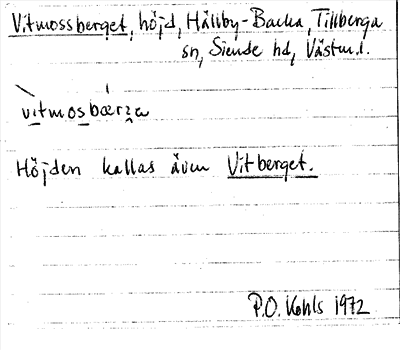 Vitmossberget, höjd, Hällby-Backa, Tillberga
sn, Siende hd, Västm.l.
vitmosbærʒə
Höjden kallas även Vitberget.
P.O. Kohls 1972